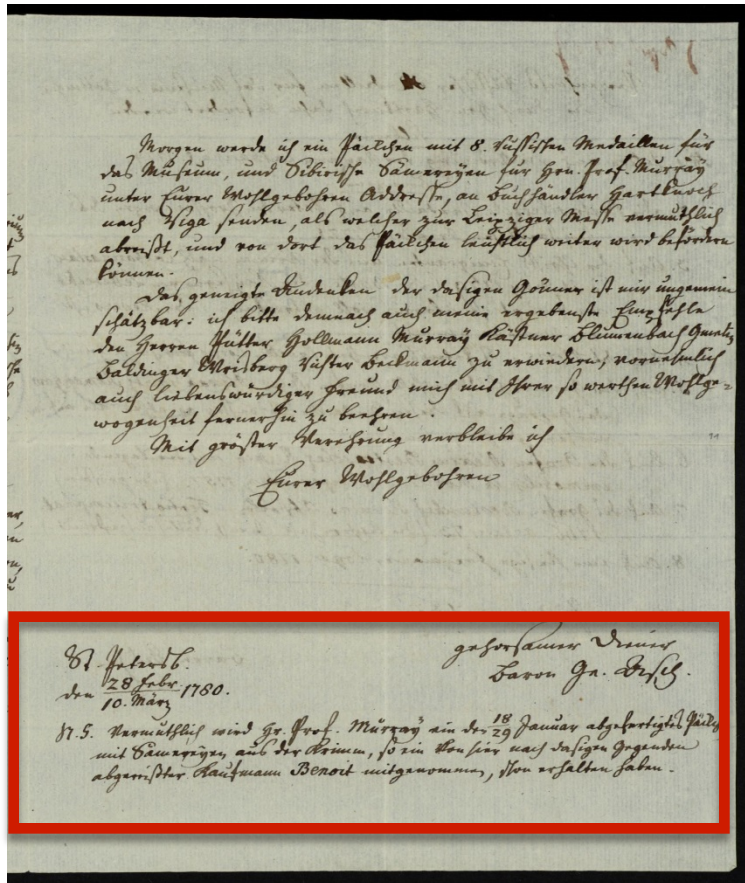 Morgen werde ich ein Päckchen mit 8. russischen Medaillen für
das Museum, und Sibirische Sämereyen für Hrn. Prof. Murray
unter Eurer Wohlgebohren Addresse, an Buchhändler Hartknoch
nach Riga senden, als welcher zur Leipziger Messe vermuthlich
abreißt, und von dort das Päckchen weiter wird befördern
können.
Das geneigte Andenken der dasigen Gönner ist mir ungemein
schätzbar: ich bitte demnach auch meine ergebenste Empfehle
den Herren Pütter Hollmann Murray Kästner Blumenbach Gmelin
Baldinger Wrisberg Richter Beckmann zu erwiedern, vornehmlich
auch liebenswürdiger Freund mich mit Ihrer so werthen Wohlge=
wogenheit fernerhin zu beehren.
Mit größter Verehrung verbleibe ich
Eurer Wohlgebohren
gehorsamer Diener
Baron Ge. Asch.
St. Petersb.
den 28 Febr / 10. März 1780.
N.S. Vermuthlich wird Hr. Prof. Murray ein den 18/29 Januar abgefertigtes Päckch
mit Sämereyen aus der Krimm, so ein von hier nach dasigen Gegenden
abgereißter Kaufmann Benoit mitgenommen, schon erhalten haben.